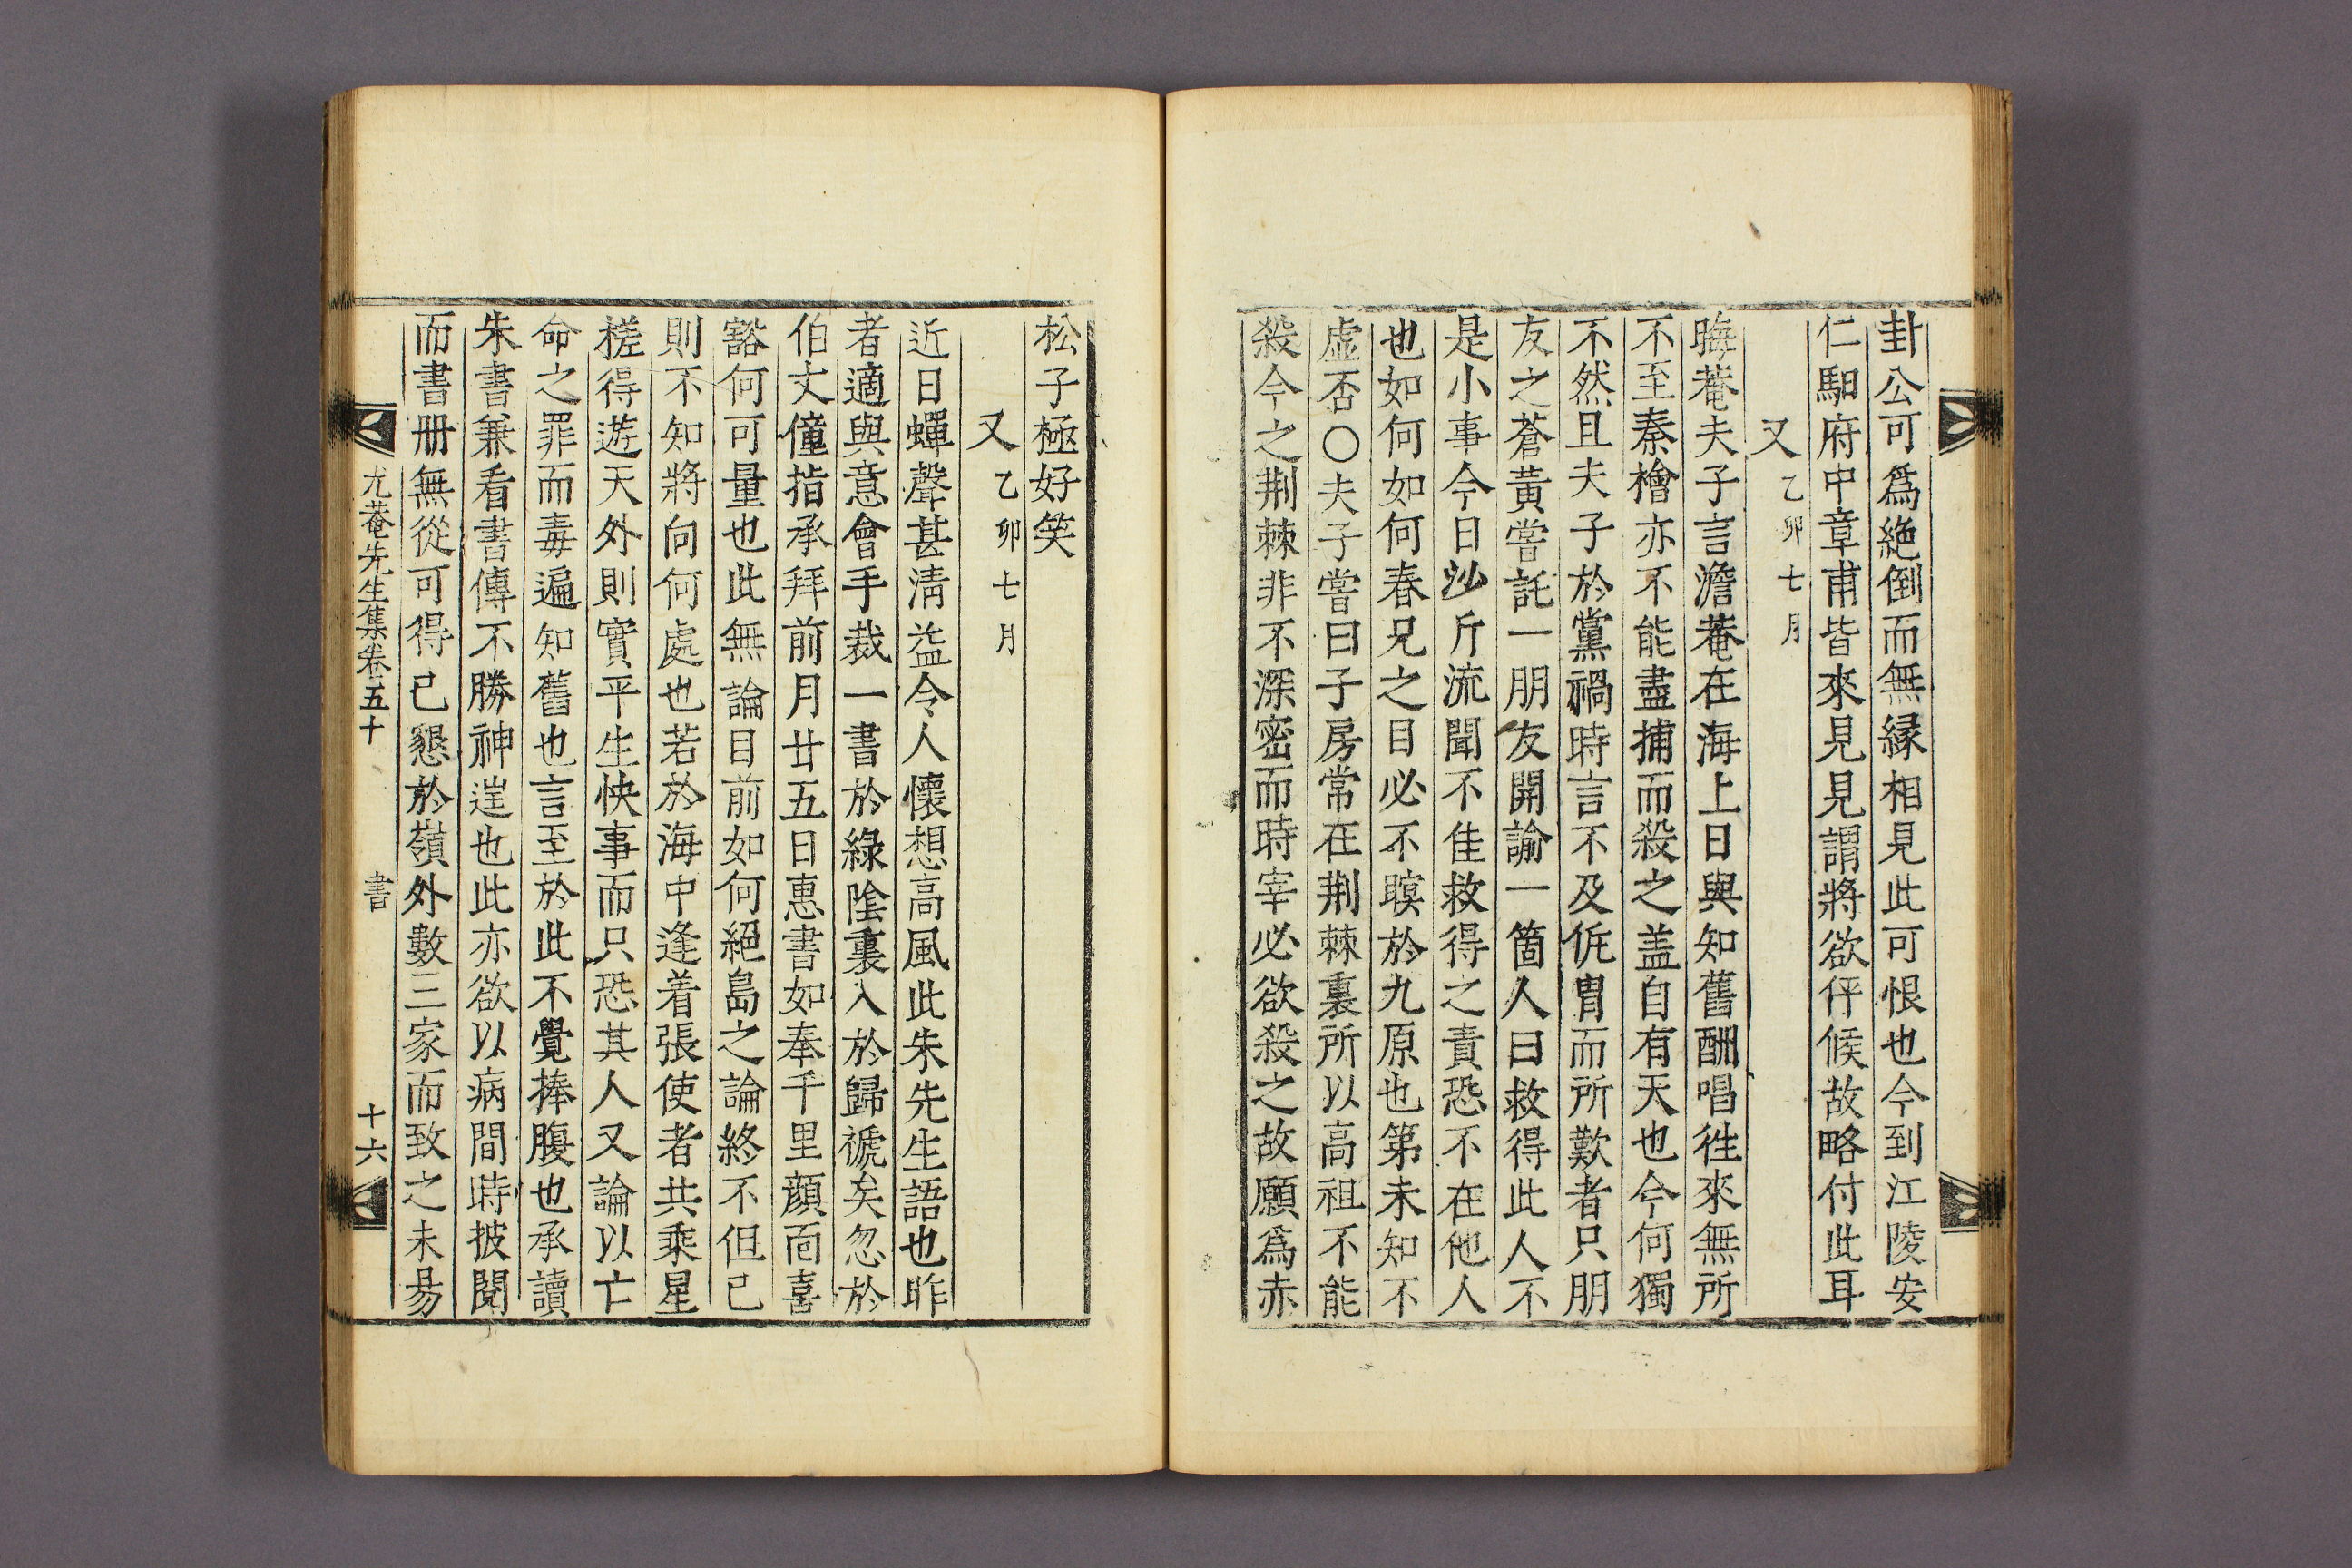 卦公可爲絶倒而無縁相見此可恨也今到江陵安
仁馹府中章甫皆來見見謂將欲伻候故略付此耳
又 乙卯七月
晦菴夫子言澹菴在海上日與知舊酬唱徃來無所
不至秦檜亦不能盡捕而殺之盖自有天也今何獨
不然且夫子於黨禍時言不及侂冑而所歎者只朋
友之蒼黃嘗託一朋友開諭一箇人曰救得此人不
是小事今日沙斤流聞不佳救得之責恐不在他人
也如何如何春兄之目必不瞑於九原也第未知不
虛否○夫子嘗曰子房常在荆棘裏所以高祖不能
殺今之荆棘非不深密而時宰必欲殺之故願爲赤
松子極好笑
又 乙卯七月
近日蟬聲甚淸益令人懷想高風此朱先生語也昨
者適與意會手裁一書於綠陰裏入於歸禠矣忽於
伯丈僮指承拜前月廿五日惠書如奉千里顔面喜
豁何可量也此無論目前如何絕島之論終不但已
則不知將向何處也若於海中逢着張使者共乘星
槎得遊天外則實平生快事而只恐其人又論以亡
命之罪而毒遍知舊也言至於此不覺捧腹也承讀
朱書兼看書傳不勝神逞也此亦欲以病間時披閱
而書册無從可得已懇於嶺外數三家而致之未易
尤菴先生集卷五十 書 十六